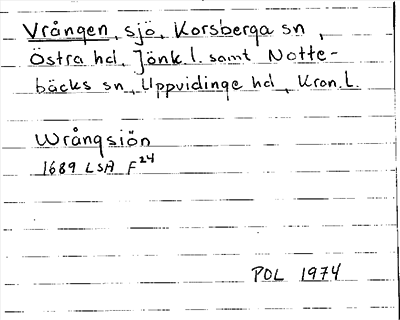 Vrången, sjö, Korsberga sn,
Östra hd, Jönk. l. samt Notte-
bäcks sn, Uppvidinge hd, Kron. L.
Wrångsiön
1689 LSA F24
POL 1974